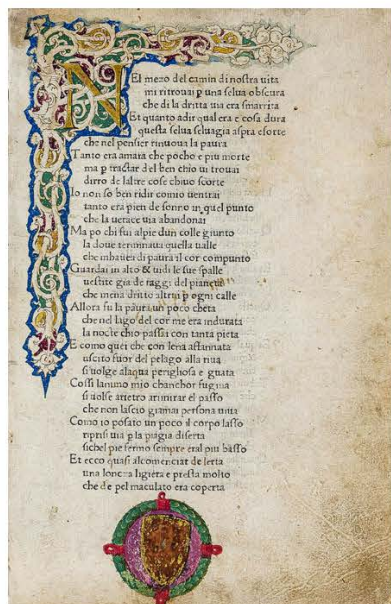 NEl mezo del camin di nostra uita
mi ritrouai p una selua obscura
che di la dritta uia era smarrita
Et quanto adir qual era e cosa dura
questa selua seluagia aspra eforte
che nel pensier rinuoua la paura
Tanto era amara che pocho e piu morte
ma p tractar del ben chio ui trouai
diro de laltre cose chiuo scorte
Io non so ben ridir comio uentrai
tanto era pien de sonno in quel punto
che la uerace uia abandonai
Ma poi chi fui alpie dun colle giunto
la doue terminaua quella ualle
che mhauea di paura il cor compunto
Guardai in alto & uidi le sue spalle
uestite gia de raggi del pianeta
che mena dritto altrui p ogni calle
Allora fu la paura un poco cheta
che nel lago del cor me era indurata
la nocte chio passai con tanta pieta
E como quei che con lena affannata
uscito fuor del pelago alla riua
si uolge alaqua perigliosa e guata
Cossi lanimo mio chanchor fugiua
si uolse arietro arimirar el passo
che non lascio giamai persona uiua
Como io posato un poco il corpo lasso
ripresi uia p la piagia diserta
sichel pie fermo sempre eral piu basso
Et ecco quasi alcomenciar de lerta
una loncia ligiera e presta molto
che de pel maculato era coperta